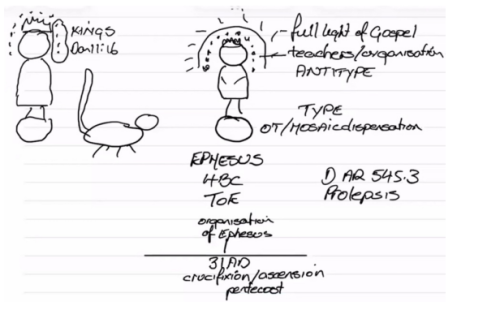 KINGS
Dan 11:16
full light of Gospel
teachers/organisation
ANTITYPE
TYPE
OT/MOSAIC dispensation
EPHESUS
4BC
ToE
organisation
of Ephesus
1) AR 545.3
Prolepsis
31AD
crucifixion/ascension
pentecost